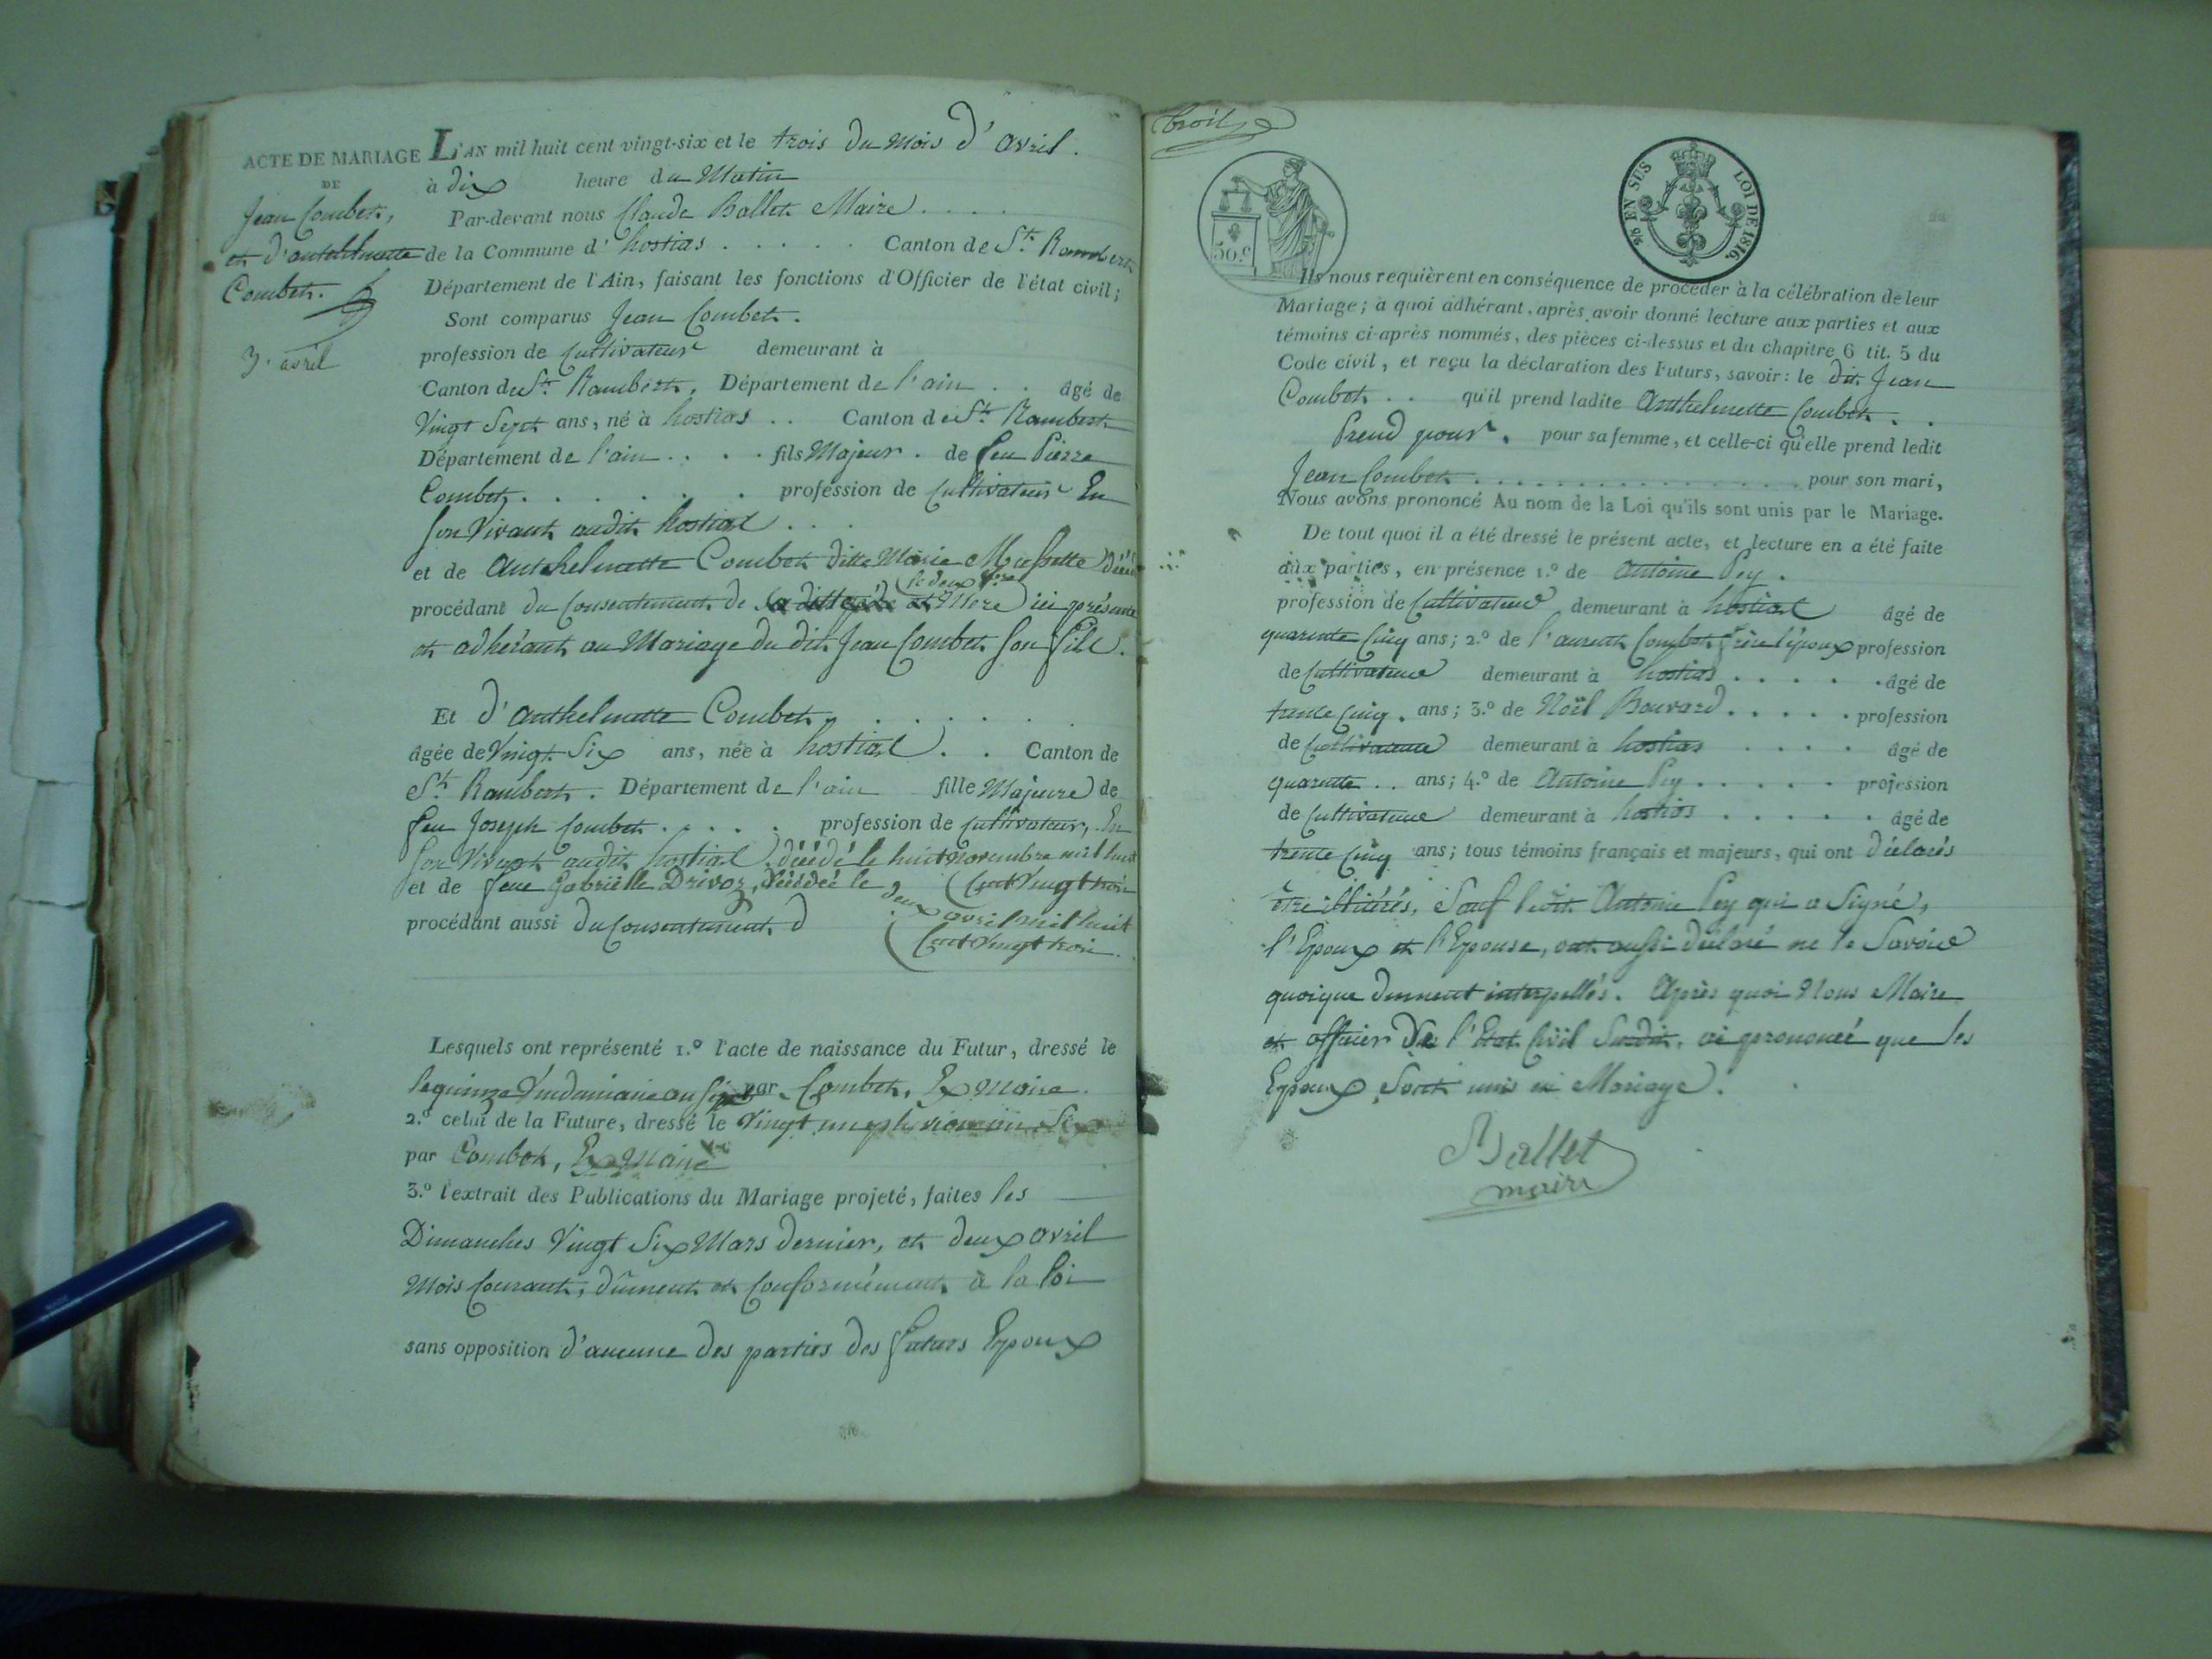 ACTE DE MARIAGE
DE
Jean Combet,
et d'anthelmette
Combet.
3. avril
L'AN mil huit cent vingt-six et le trois du mois d'avril.
à dix heure du Matin
Par-devant nous Claude Ballet Maire
de la Commune d'hostias Canton de St. Rambert
Département de l'Ain, faisant les fonctions d'Officier de l'état civil;
Sont comparus Jean Combet.
profession de Cultivateur demeurant à
Canton de St. Rambert, Département de l'ain âgé de
Vingt Sept ans, né à hostias Canton de St. Rambert
Département de l'ain fils Majeur de feu Pierre
Combet profession de Cultivateur En
Son Vivant audit hostias
et de Anthelmette Combet ditte Marie
procédant du Consentement de Mere ici présente
et adhérant au Mariage du dit Jean Combet Son fils.
Et d'anthelmette Combet
âgée de Vingt Six ans, née à hostias Canton de
St. Rambert. Département de l'ain fille Majeure de
feu Joseph Combet profession de Cultivateur, En
Son Vivant audit hostias décédé le huit novembre mil huit
Cent Vingt trois
et de feue Gabrielle Drivoz, décédée le deux avril mil huit
Cent Vingt trois
procédant aussi du Consentement d
Lesquels ont représenté 1.º l'acte de naissance du Futur, dressé le
le quinze Vendemiaire an Six par Combet, Ex Maire
2.º celui de la Future, dressé le Vingt un pluviose an Six
par Combet, Ex Maire
3.º l'extrait des Publications du Mariage projeté, faites les
Dimanches Vingt Six Mars dernier, et deux avril
Mois Courant, dûment et Conformément à la loi
sans opposition d'aucune des parties des futurs Epoux
50.c
96 EN SUS LOI DE 1816.
Ils nous requièrent en conséquence de procéder à la célébration de leur
Mariage; à quoi adhérant, après avoir donné lecture aux parties et aux
témoins ci-après nommés, des pièces ci-dessus et du chapitre 6 tit. 5 du
Code civil, et reçu la déclaration des Futurs, savoir: le dit Jean
Combet qu'il prend ladite Anthelmette Combet
Prend pour pour sa femme, et celle-ci qu'elle prend ledit
Jean Combet pour son mari,
Nous avons prononcé Au nom de la Loi qu'ils sont unis par le Mariage.
De tout quoi il a été dressé le présent acte, et lecture en a été faite
aux parties, en présence 1.º de Antoine Pey.
profession de Cultivateur demeurant à hostias âgé de
quarente Cinq ans; 2.º de Laurent Combet frère l'époux profession
de Cultivateur demeurant à hostias âgé de
trente Cinq ans; 3.º de Noël Bouvard profession
de Cultivateur demeurant à hostias âgé de
quarente ans; 4.º de Antoine Pey profession
de Cultivateur demeurant à hostias âgé de
trente Cinq ans; tous témoins français et majeurs, qui ont déclarés
être illitérés, Sauf ledit Antoine Pey qui a Signé,
l'Epoux et l'Epouse, ont aussi déclaré ne le Savoir
quoique dument interpellés. Après quoi Nous Maire
et officier de l'Etat Civil Susdit, ai prononcé que les
Epoux Sont unis en Mariage.
Ballet
maire